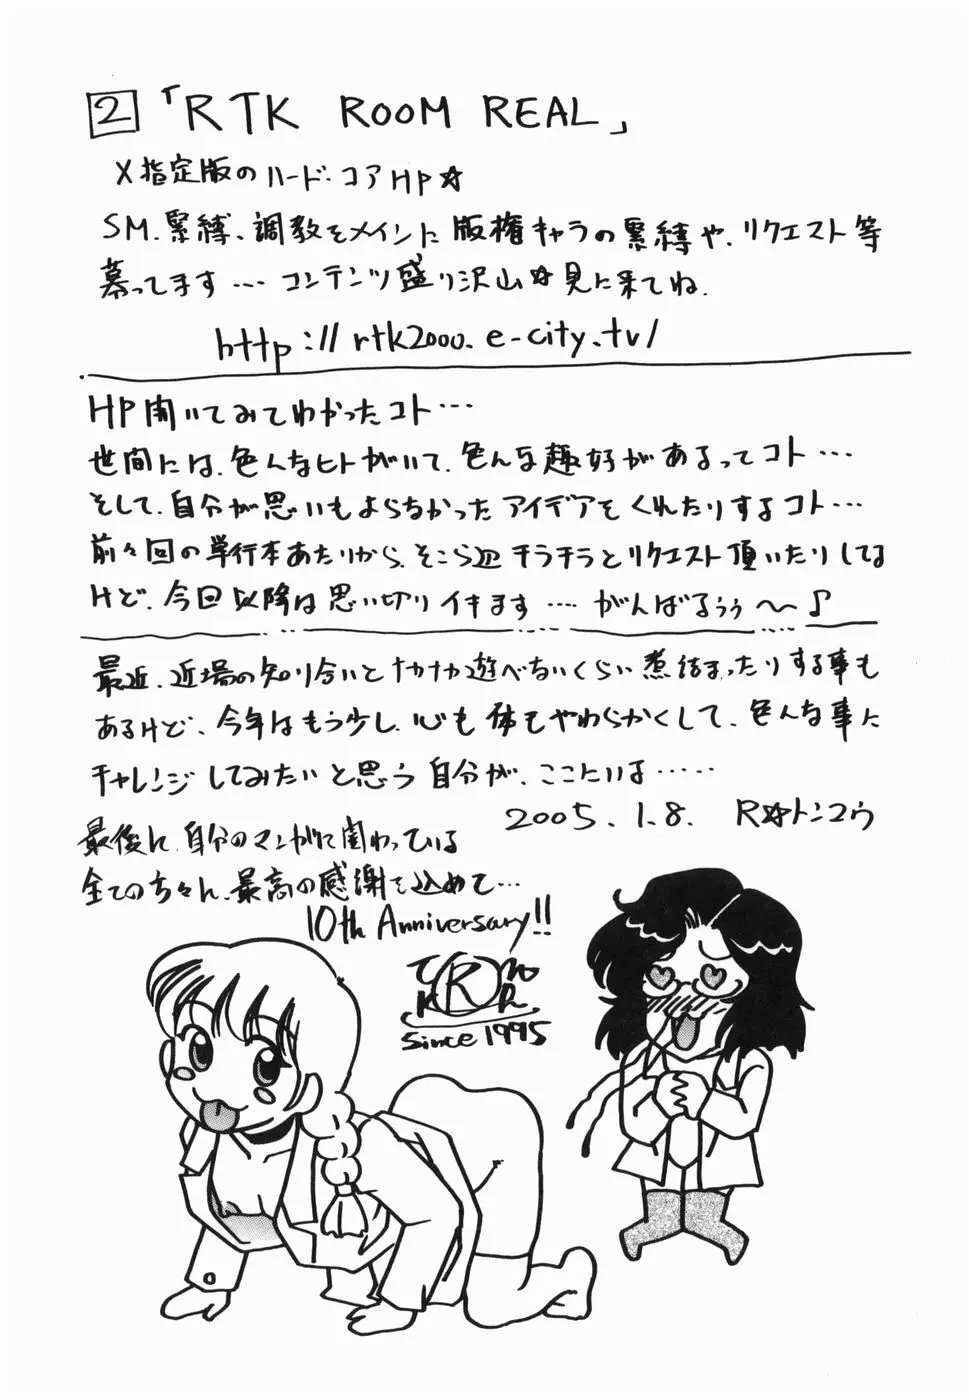 2 「RTK ROOM REAL」
X指定版のハード・コアHP☆
SM、緊縛、調教をメインに版権キャラの緊縛や、リクエスト等
募ってます…コンテンツ盛り沢山☆見に来てね.
http://rtk2000.e-city.tv/
HP開いてみてわかったコト…
世間には、色んなヒトがいて、色んな趣好があるってコト…
そして、自分が思いもよらなかったアイデアをくれたりするコト…
前々回の単行本あたりから、そこら辺チラチラとリクエスト頂いたりしてる
けど、今回以降は思い切りイキます…. がんばるぅぅ〜♪
最近、近場の知り合いとナカナカ遊べないくらい煮詰まったりする事も
あるけど、今年はもう少し、心も体もやわらかくして、色んな事に
チャレンジしてみたいと思う自分が、ここにいま……
2005.1.8. R☆トンコウ
最後に、自分のマンガに関わっている
全ての方々へ、最高の感謝を込めて…
10th Anniversary!!
R
since 1995